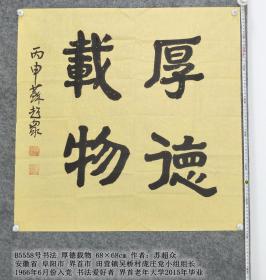 厚德
載物
丙申蘇超众
B5558号书法 厚德载物 68×68cm 作者：苏超众
安徽省 阜阳市 界首市 田营镇吴桥村庞庄党小组组长
1966年6月份入党 书法爱好者 界首老年大学2015年毕业